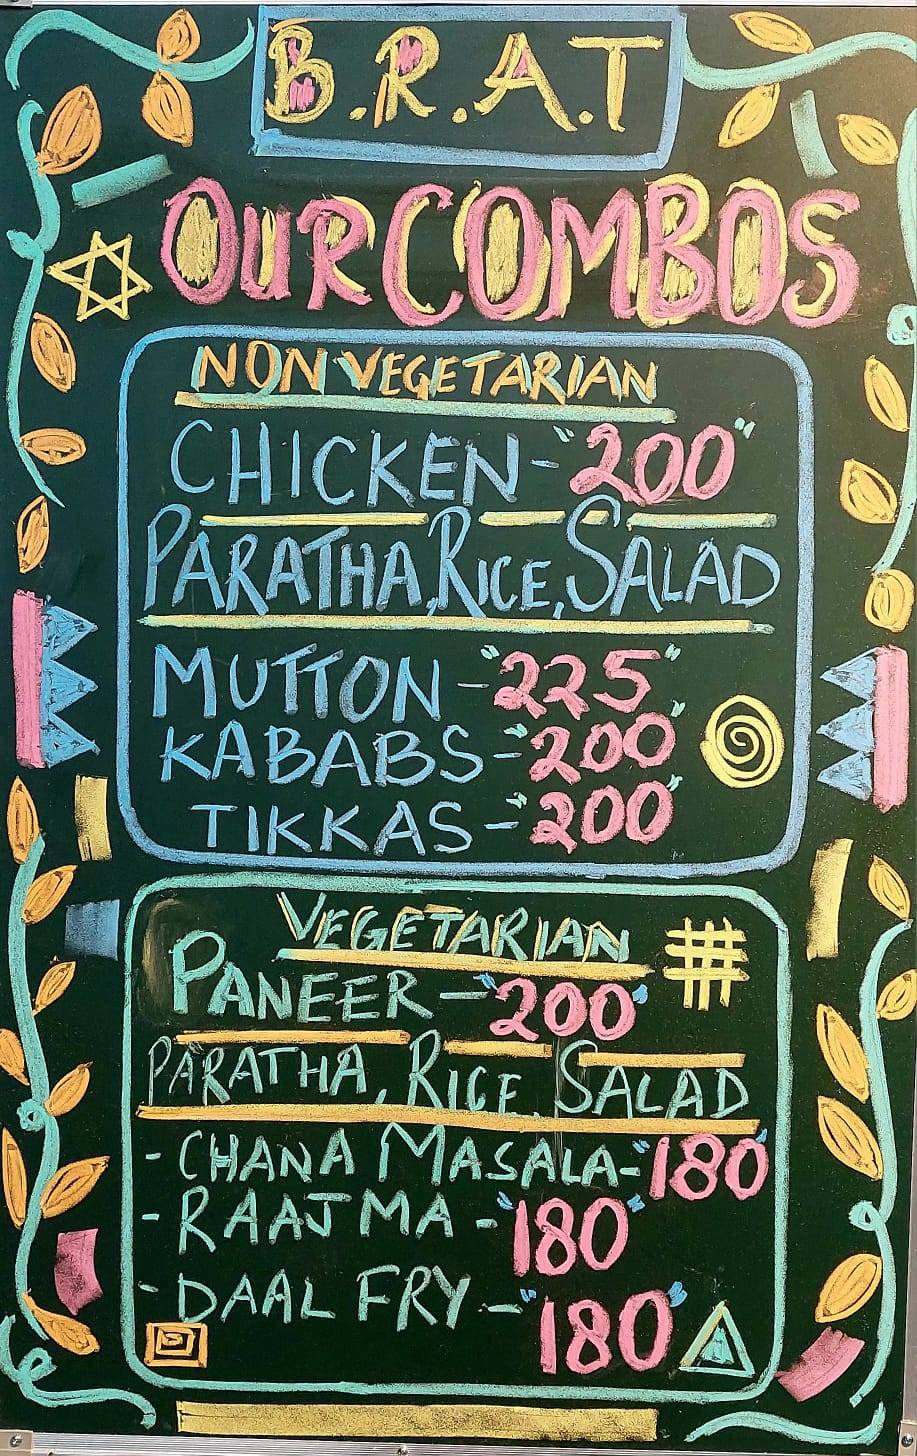 B.R.A.T
OUR COMBOS
NON VEGETARIAN
CHICKEN - "200"
PARATHA, RICE, SALAD
MUTTON - "225"
KABABS - "200"
TIKKAS - "200"
VEGETARIAN
PANEER - "200"
PARATHA, RICE, SALAD
- CHANA MASALA - "180"
- RAAJMA - "180"
- DAAL FRY - "180"